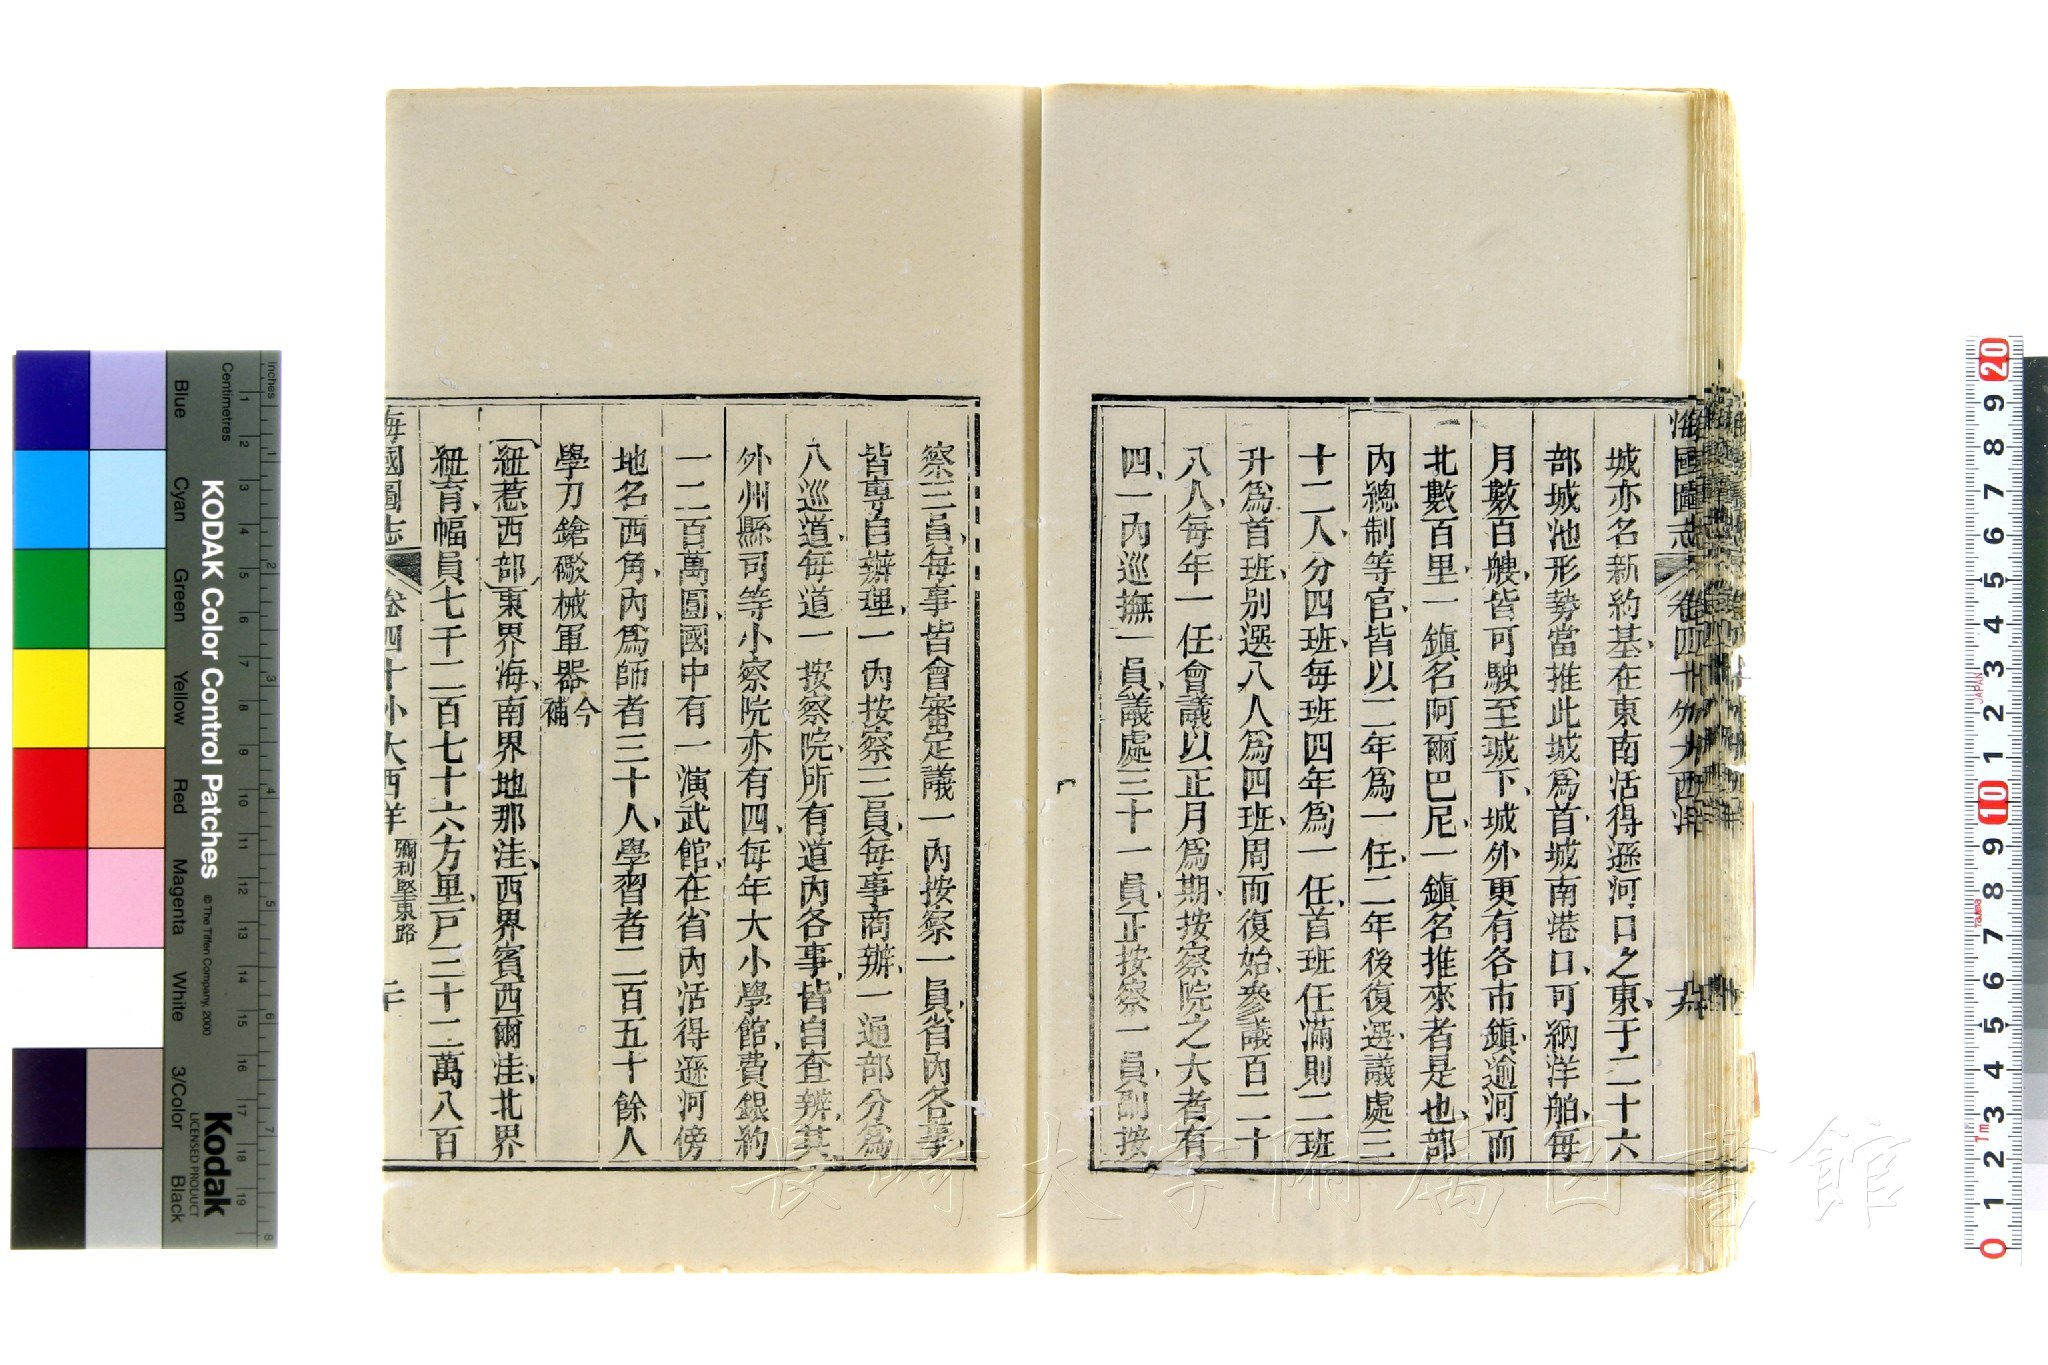 海國圖志 卷四十 外大西洋
城亦名新約基在東南活得遜河口之東于二十六
部城池形勢當推此城爲首城南港口可納洋舶每
月數百艘皆可駛至城下城外更有各市鎮逾河而
北數百里一鎮名阿爾巴尼一鎮名推來者是也部
內總制等官皆以二年爲一任二年後復選議處三
十二人分四班每班四年爲一任首班任滿則二班
升爲首班別選八人爲四班周而復始參議百二十
八人每年一任會議以正月爲期按察院之大者有
四一內巡撫一員議處三十一員正按察一員副按
察三員每事皆會審定議一內按察一員省內各事
皆專自辦理一內按察三員每事商辦一通部分爲
八巡道每道一按察院所有道內各事皆自查辦其
外州縣司等小察院亦有四每年大小學館費銀約
一二百萬圓國中有一演武館在省內活得遜河傍
地名西角內爲師者三十人學習者二百五十餘人
學刀鎗礮械軍器今補
紐惹西部東界海南界地那洼西界賓西爾洼北界
紐育幅員七千二百七十六方里戶三十二萬八百
海國圖志 卷四十 外大西洋 彌利堅東路 二十
KODAK Color Control Patches
© The Tiffen Company, 2000
Kodak
LICENSED PRODUCT
inches
Centimetres
Blue
Cyan
Green
Yellow
Red
Magenta
White
3/Color
Black
JAPAN
Tajima
長崎大学附属図書館